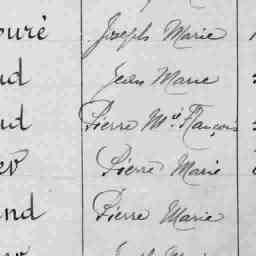 ouré Joseph Marie
nd Jean Marie
nd Pierre Mie François
ev Pierre Marie
nd Pierre Marie